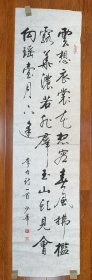 雲想衣裳花想容春風拂檻
露華濃若非群玉山頭見會
向瑶臺月下逢
李白詩一首